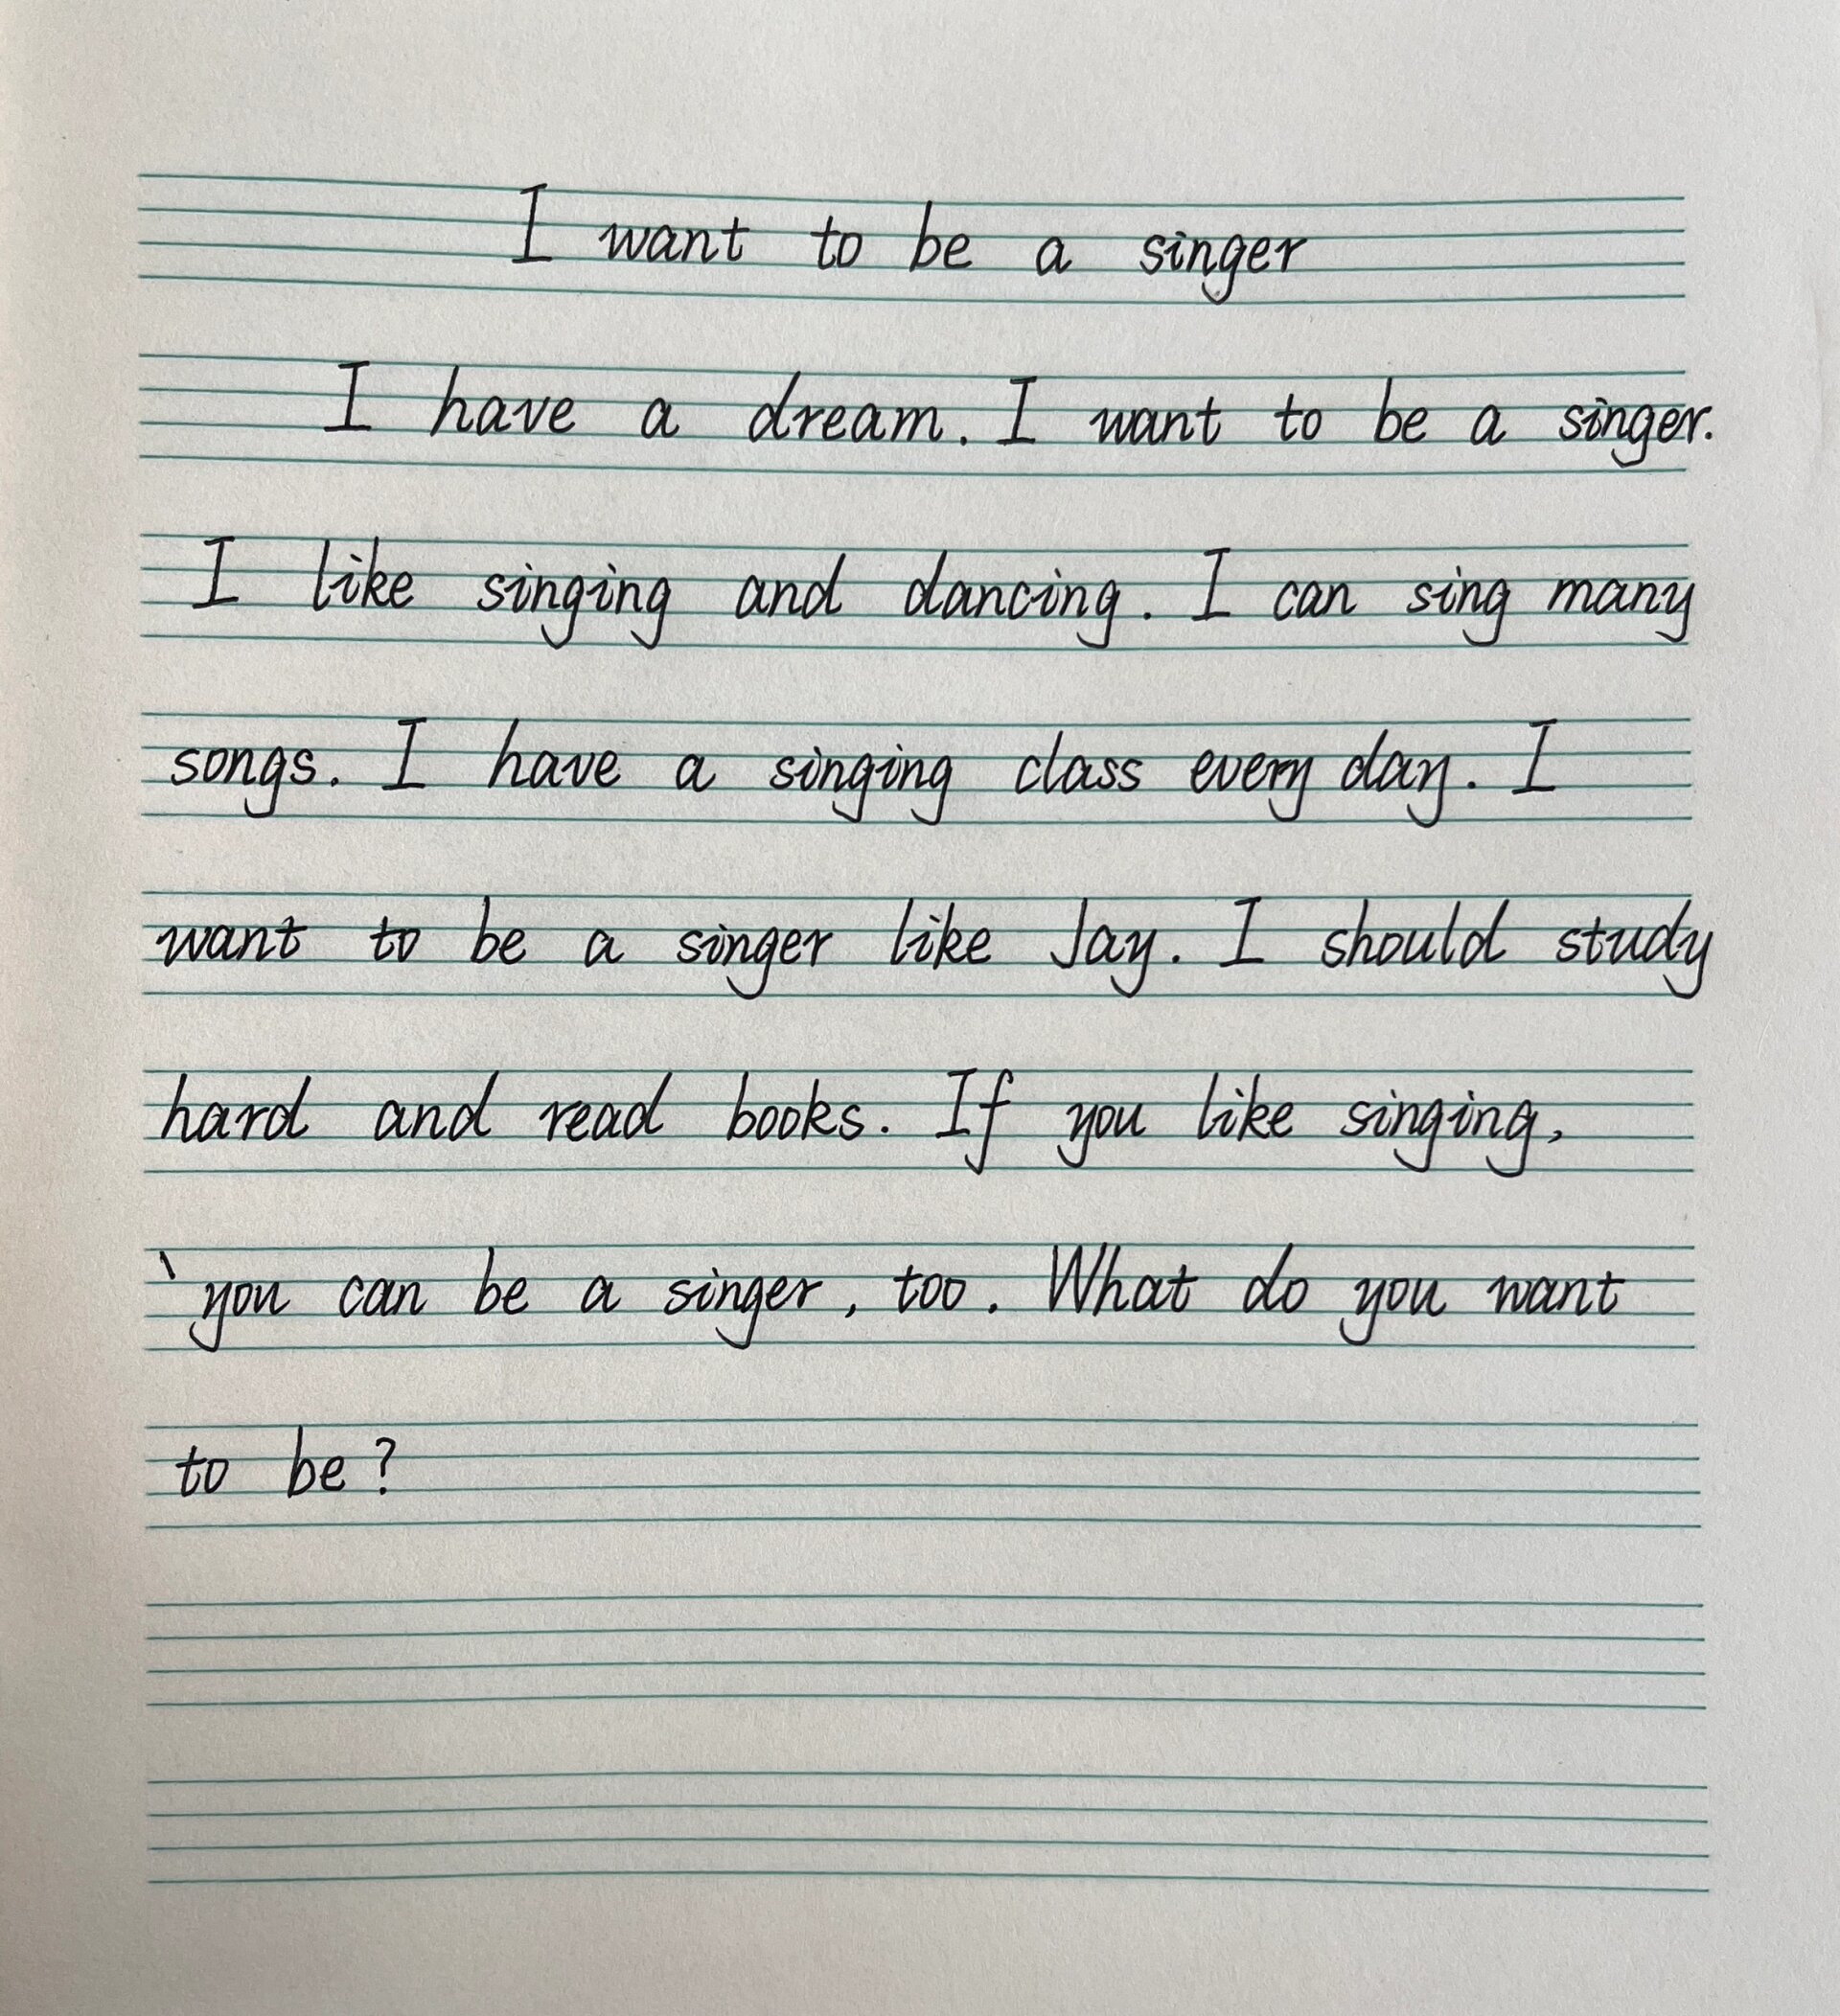 I want to be a singer
I have a dream. I want to be a singer.
I like singing and dancing. I can sing many
songs. I have a singing class every day. I
want to be a singer like Jay. I should study
hard and read books. If you like singing,
you can be a singer, too. What do you want
to be?